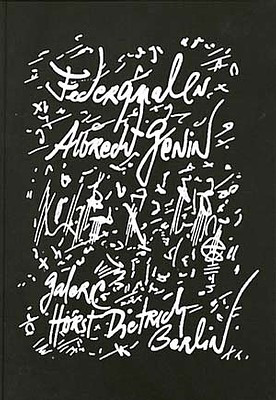 Federqualen
Albrecht Genin
Galerie
Horst Dietrich
Berlin